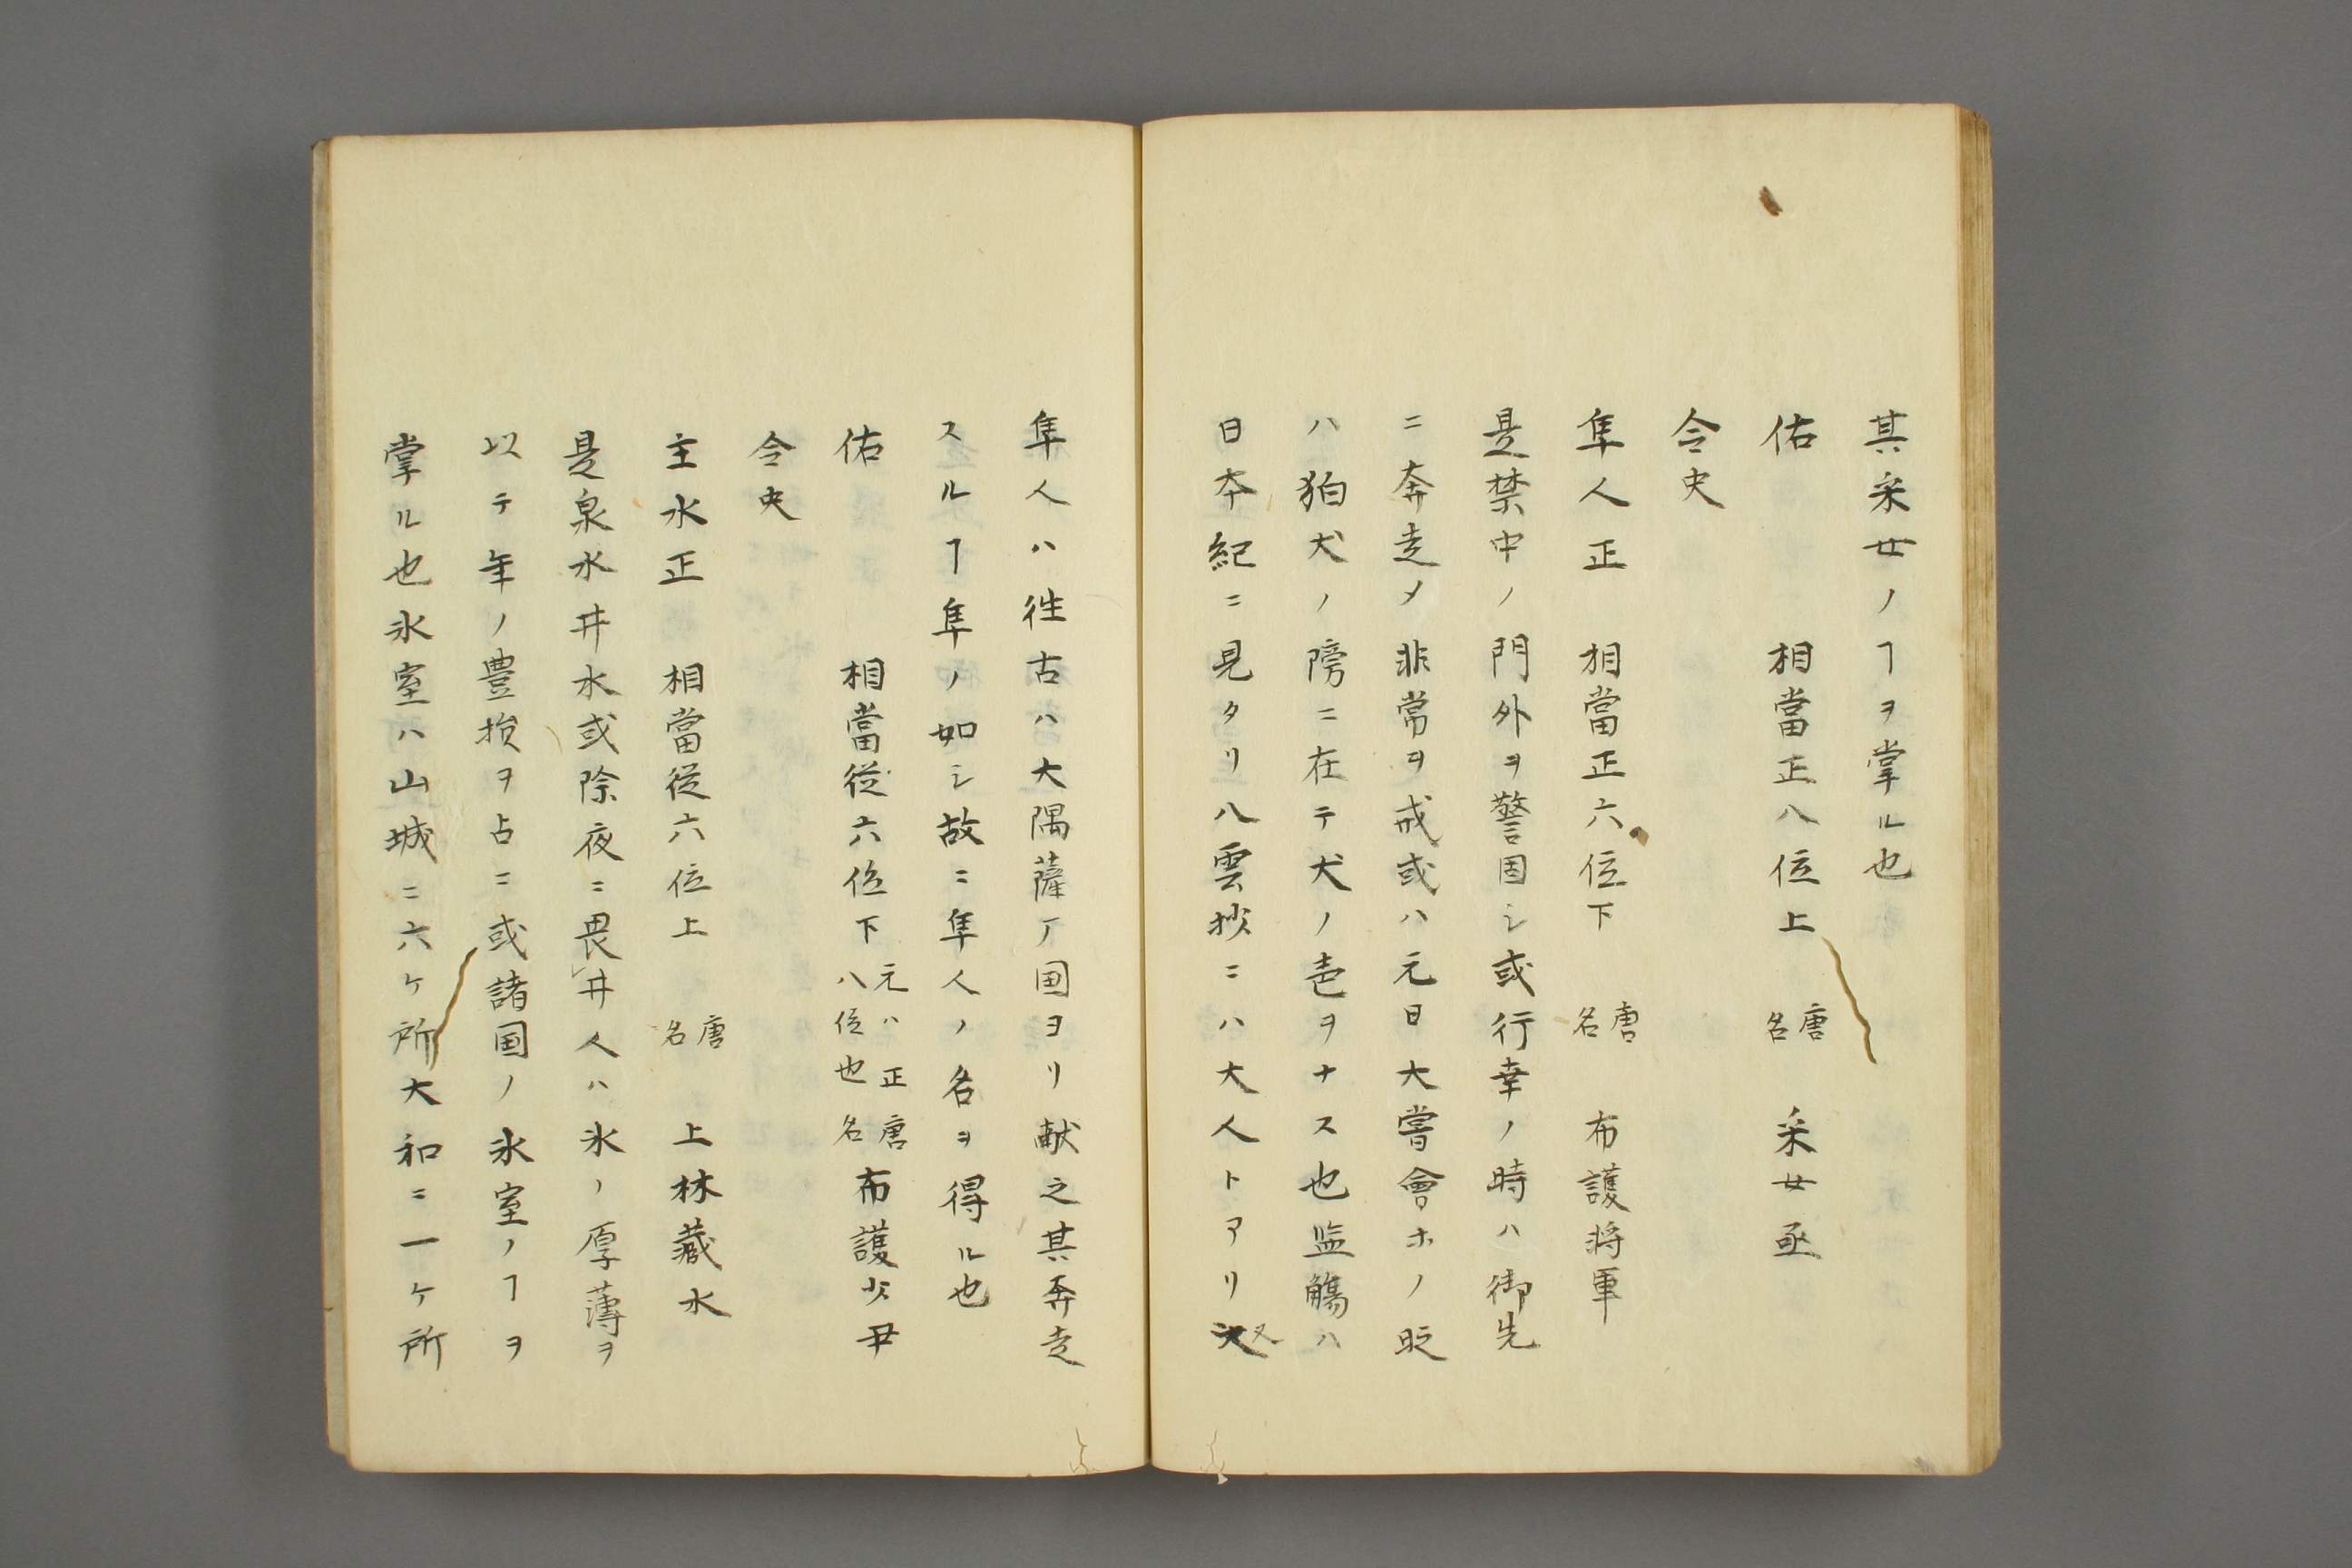 其采女ノヿヲ掌ル也
佑 相當正八位上 唐名 采女亟
令史
隼人正 相當正六位下 唐名 布護将軍
是禁中ノ門外ヲ警固シ或行幸ノ時ハ御先
ニ奔走〆非常ヲ戒或ハ元日大嘗會ホノ時
ハ狛犬ノ傍ニ在テ犬ノ声ヲナス也監觴ハ
日夲紀ニ見タリ八雲抄ニハ大人トアリ又
隼人ハ徃古ハ大隅薩丆国ヨリ献之其奔走
スルヿ隼ノ如シ故ニ隼人ノ名ヲ得ル也
佑 相當従六位下 元ハ正八位也 唐名 布護少尹
令史
主水正 相當従六位上 唐名 上林藏水
是泉水井水或除夜ニ畏井人ハ氷ノ厚薄ヲ
以テ年ノ豊損ヲ占ニ或諸国ノ氷室ノヿヲ
掌ル也氷室ハ山城ニ六ケ所大和ニ一ケ所